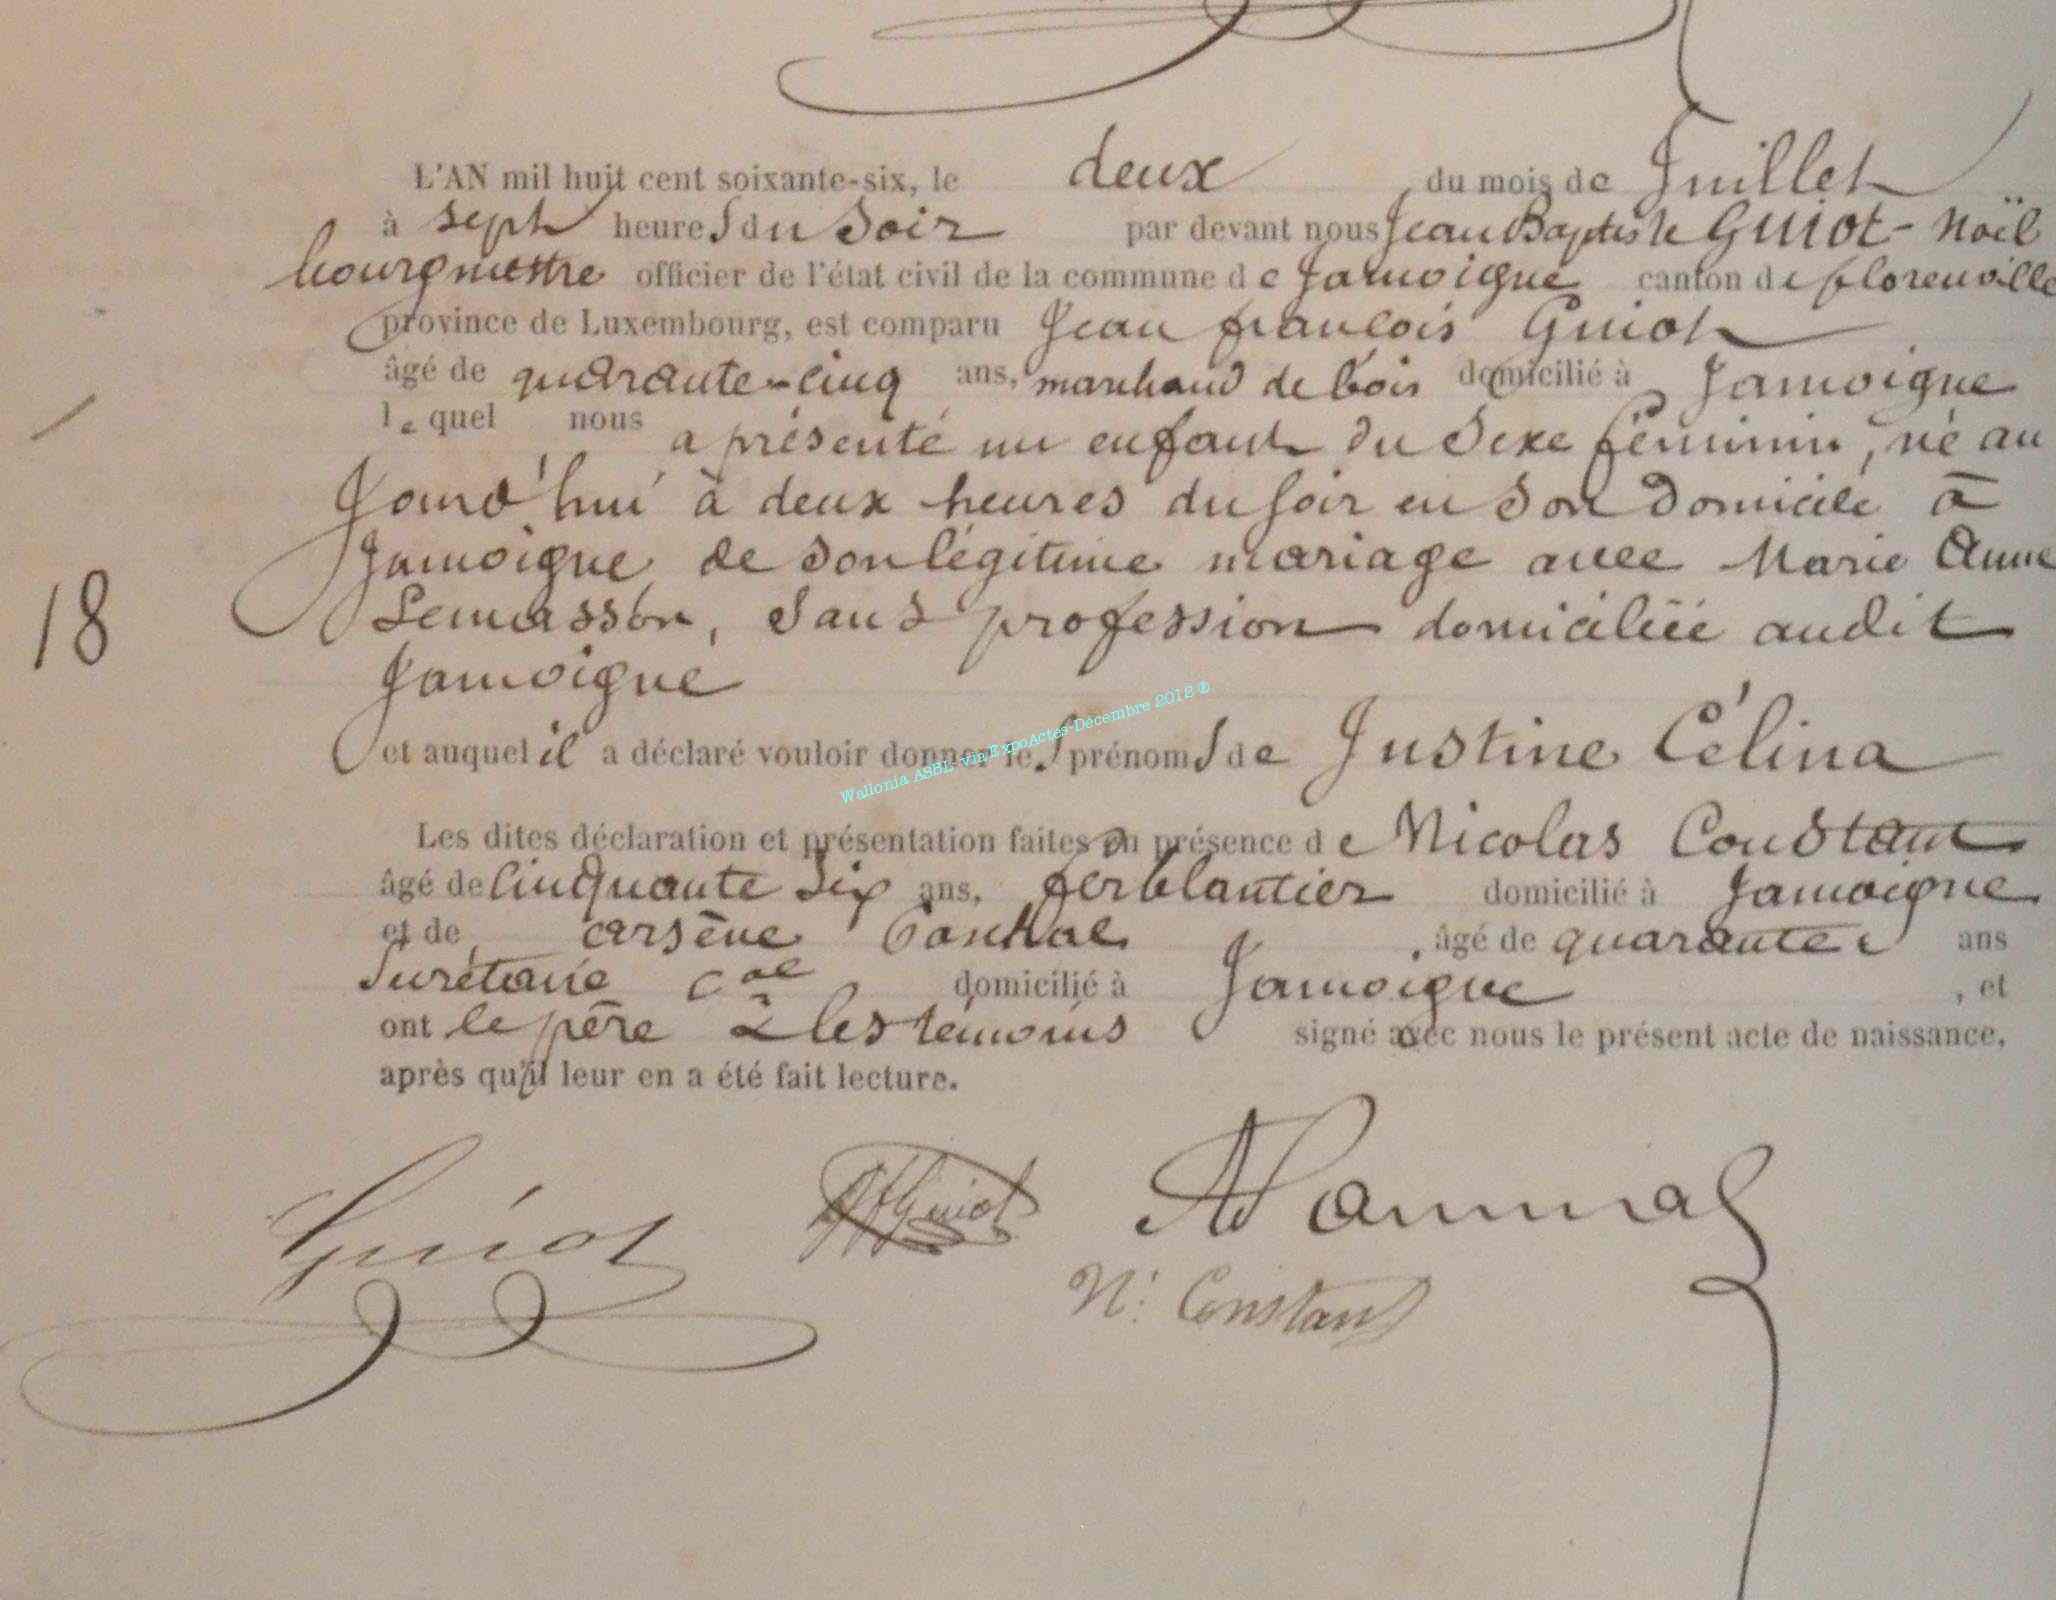 L'AN mil huit cent soixante-six, le deux du mois de Juillet
à sept heures du Soir par devant nous Jean Baptiste Guiot-Noël
bourgmestre officier de l'état civil de la commune de Jamoigne canton de florenville
province de Luxembourg, est comparu Jean francois Guiot
âgé de quarante-cinq ans, marchand de bois domicilié à Jamoigne
lequel nous a présenté un enfant du Sexe féminin, né au
Jourd'hui à deux heures du soir en son domicile à
Jamoigne de son légitime mariage avec Marie Anne
Lemasson, sans profession domiciliée audit
Jamoigne
et auquel il a déclaré vouloir donner les prénoms de Justine Célina
Wallonia ASBL via ExpoActes-Décembre 2012 ®
Les dites déclaration et présentation faites en présence de Nicolas Constant
âgé de cinquante six ans, ferblantier domicilié à Jamoigne
et de arsène âgé de quarante ans
Secrétaire cal domicilié à Jamoigne, et
ont le père & les témoins signé avec nous le présent acte de naissance,
après qu'il leur en a été fait lecture.
18
Guiot JFGuiot
N. Constant